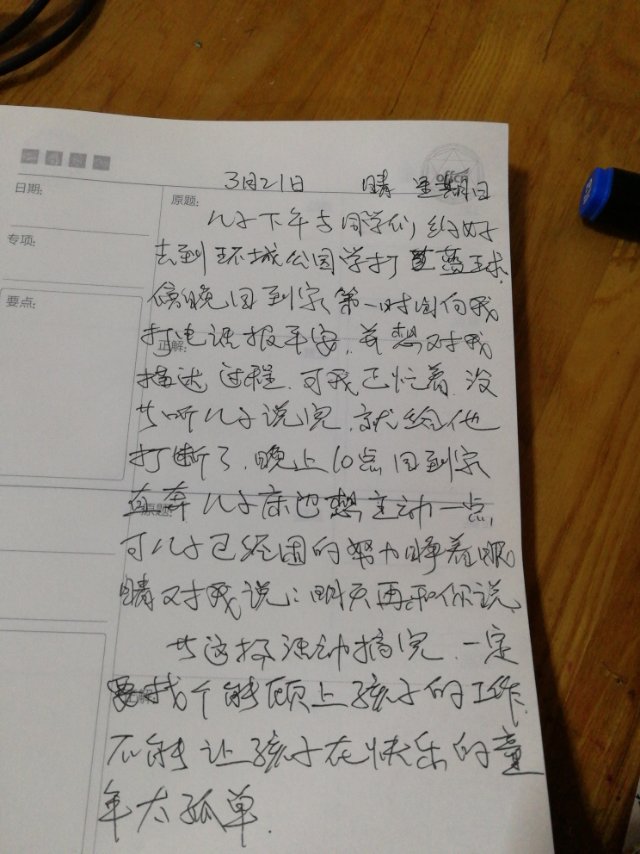 3月21日 晴 星期日
日期:
原题:
儿子下午与同学们约好
专项:
去到环城公园学打蓝球,
要点:
傍晚回到家第一时间向我
打电话报平安,并想对我
正解:
描述过程,可我正忙着,没
等听儿子说完,就给他
打断了,晚上10点回到家
直奔儿子床边想主动一点,
原题:
可儿子已经困的努力睁着眼
睛对我说:明天再和你说,
等这场活动搞完,一定
要找个能顾上孩子的工作,
不能让孩子在快乐的童
年太孤单.